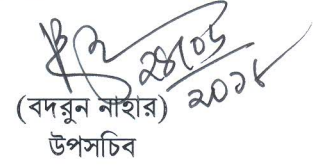 ২০১৮
(বদরুন নাহার)
উপসচিব